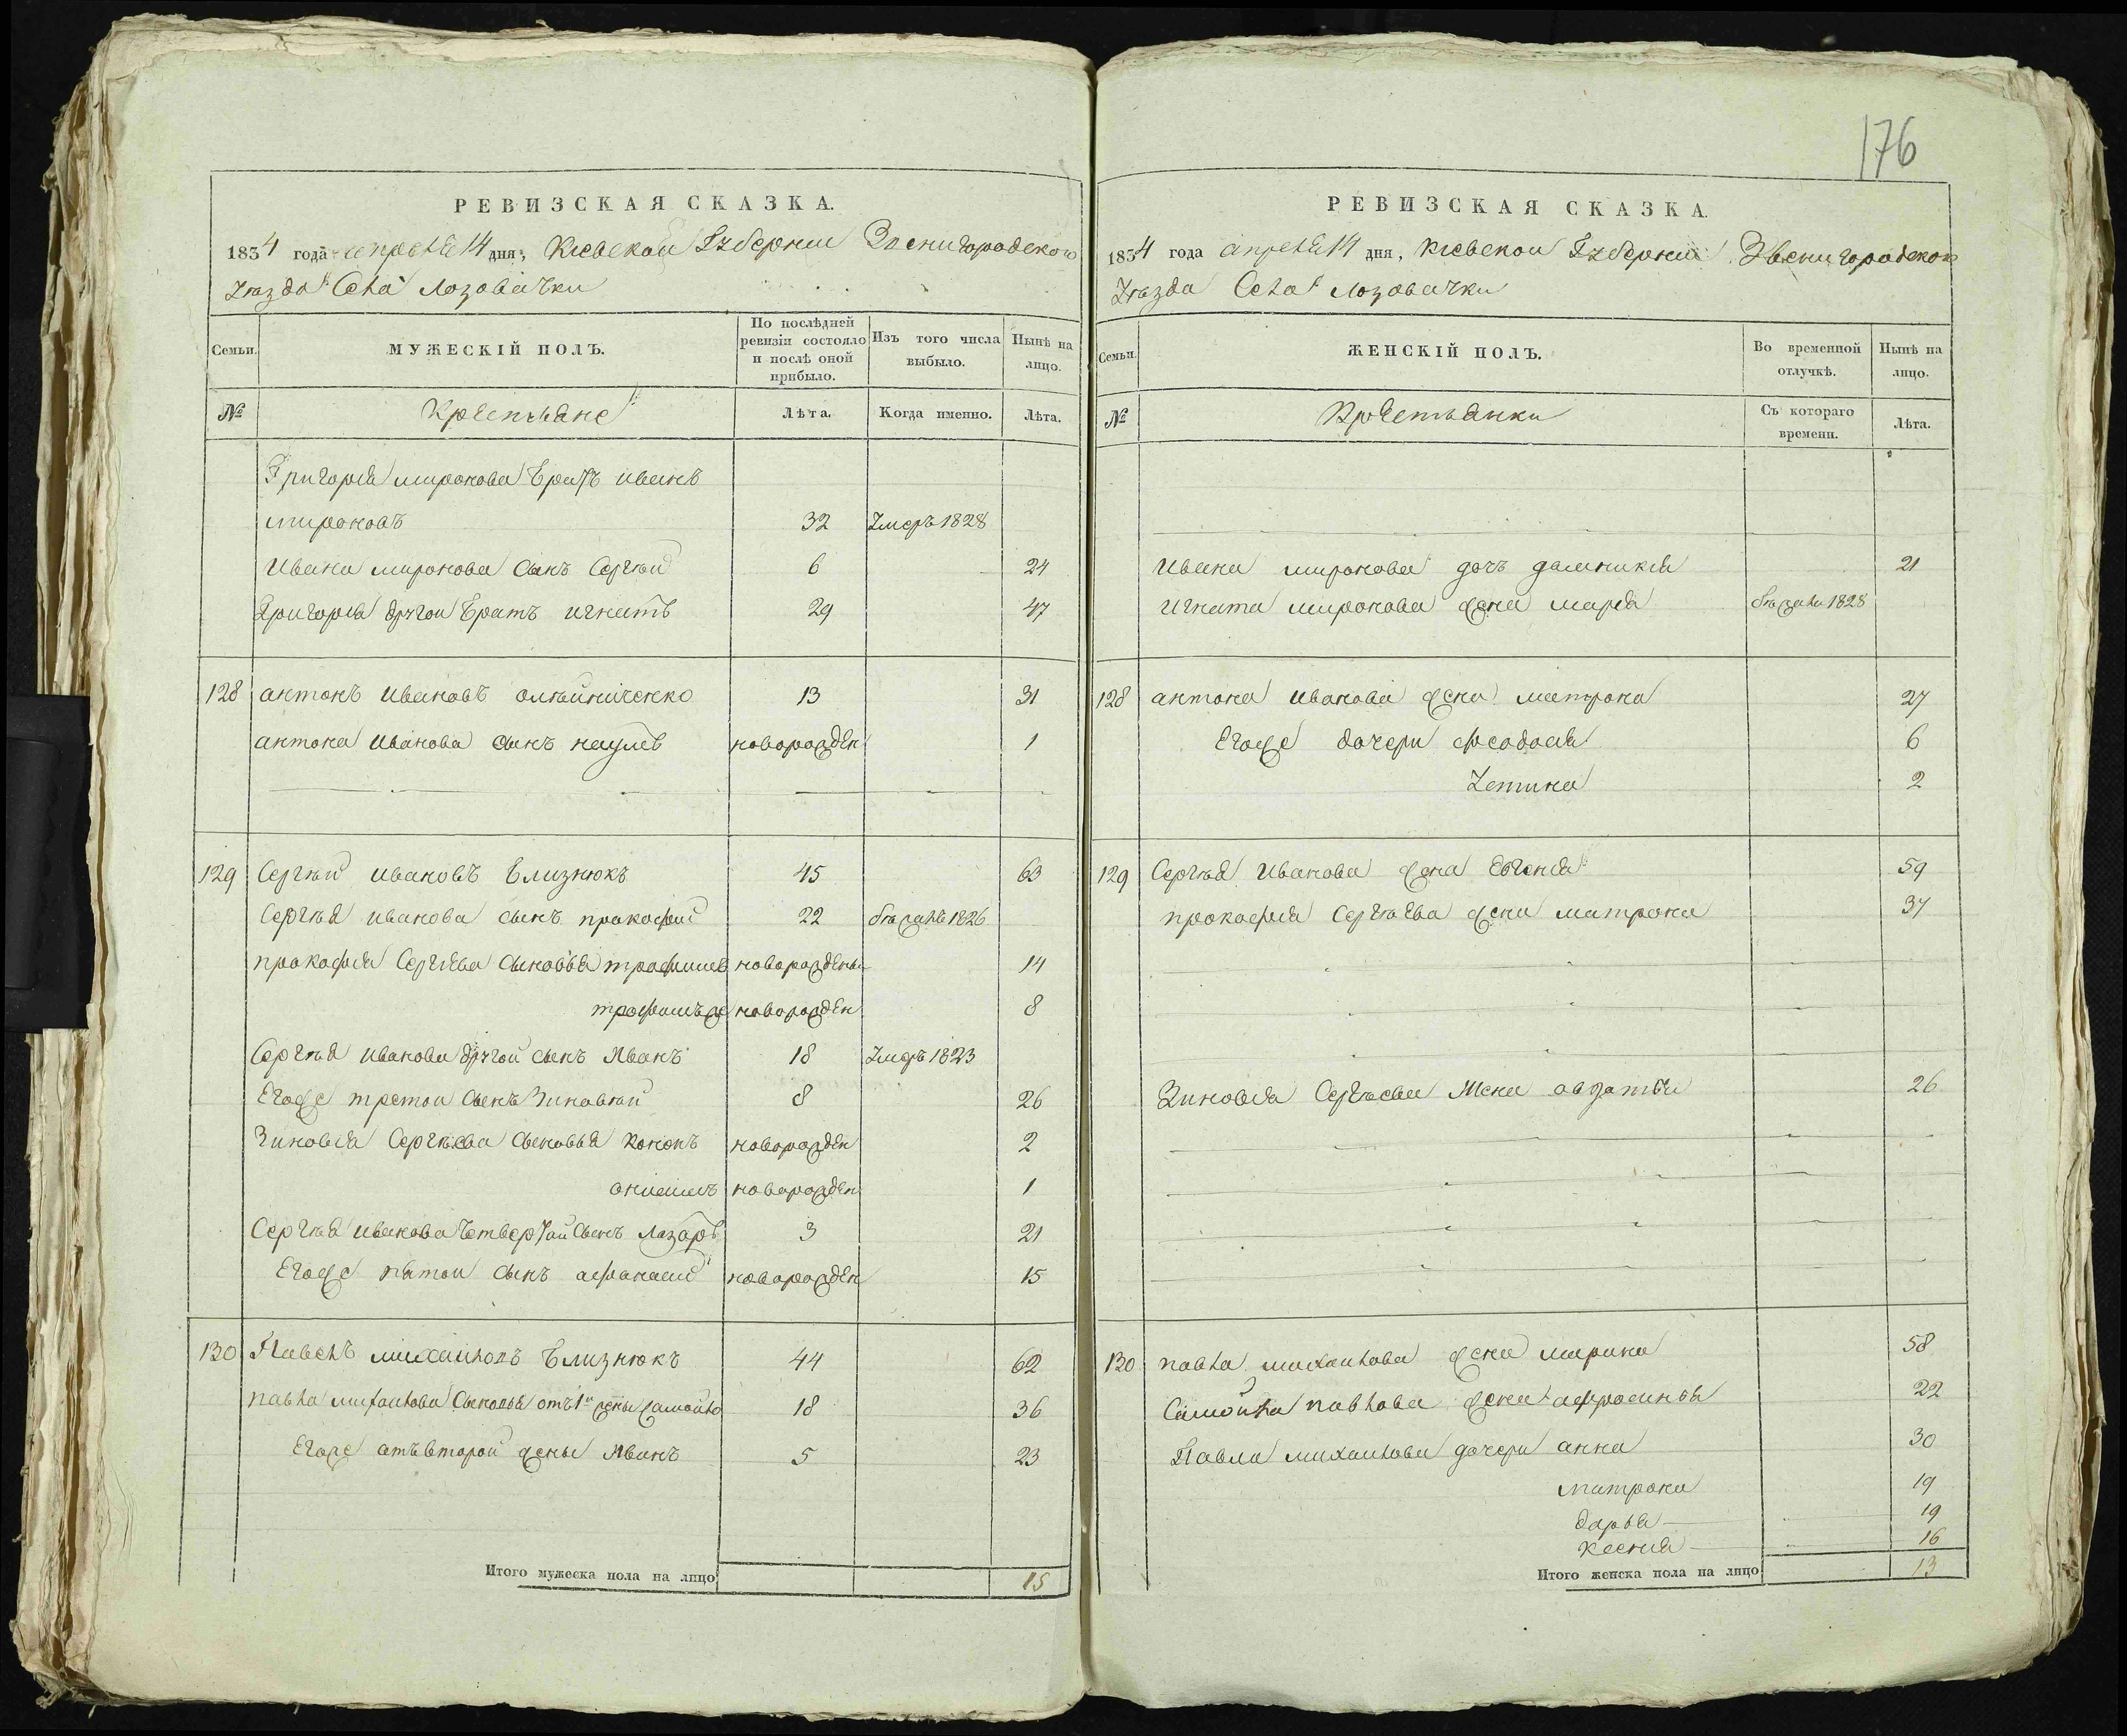 176
РЕВИЗСКАЯ СКАЗКА.
1834 года апреля 14 дня, Киевской Губернии Звенигородского
Уезда Села Лозоватки
Семьи.
МУЖЕСКІЙ ПОЛЪ.
По послѣдней ревизіи состояло и послѣ оной прибыло.
Изъ того числа выбыло.
Нынѣ на лицо.
№
Крестьяне
Лѣта.
Когда именно.
Лѣта.
Григорія миронова братъ иванъ
мироновъ 32 Умеръ 1828
Ивана миронова сынъ Сергѣй 6 24
Григорія другой братъ игнатъ 29 47
128 антонъ ивановъ олѣйниченко 13 31
антона иванова сынъ наумъ новорожден 1
129 Сергѣй ивановъ близнюкъ 45 63
Сергѣя иванова сынъ прокофій 22 бѣжалъ 1826
прокофія Сергѣева сыновья трофимъ новорождены 14
новорожден 8
Сергѣя иванова другой сынъ Иванъ 18 Умеръ 1823
Егоже третой сынъ Зиновѣй 8 26
Зиновія Сергѣева сыновья кононъ новорожден 2
новорожден 1
Сергѣя иванова четвертой сынъ Лазаръ 3 21
Егоже пятой сынъ афанасій новорожден 15
130 Павелъ михаиловъ близнюкъ 44 62
павла михаилова сыновья отъ 1й жены самойло 18 36
Егоже отъ второй жены Иванъ 5 23
Итого мужеска пола на лицо 15
РЕВИЗСКАЯ СКАЗКА.
1834 года апреля 14 дня, Киевской Губернии Звенигородского
Уезда Села Лозоватки
Семьи.
ЖЕНСКІЙ ПОЛЪ.
Во временной отлучкѣ.
Нынѣ на лицо.
№
Крестьянки
Съ котораго времени.
Лѣта.
Ивана миронова дочъ доминикія 21
Игната миронова жена марія бѣжала 1828
128 антона иванова жена матрона 27
Егоже дочери феодосія 6
Устина 2
129 Сергѣя Иванова жена Евгенія 59
прокофія Сергѣева жена матрона 37
Зиновія Сергѣева Жена 26
130 павла михаилова жена марина 58
Самойла павлова жена афросинья 22
Павла михаилова дочери анна 30
матрона 19
дарья 19
ксенія 16
Итого женска пола на лицо 13